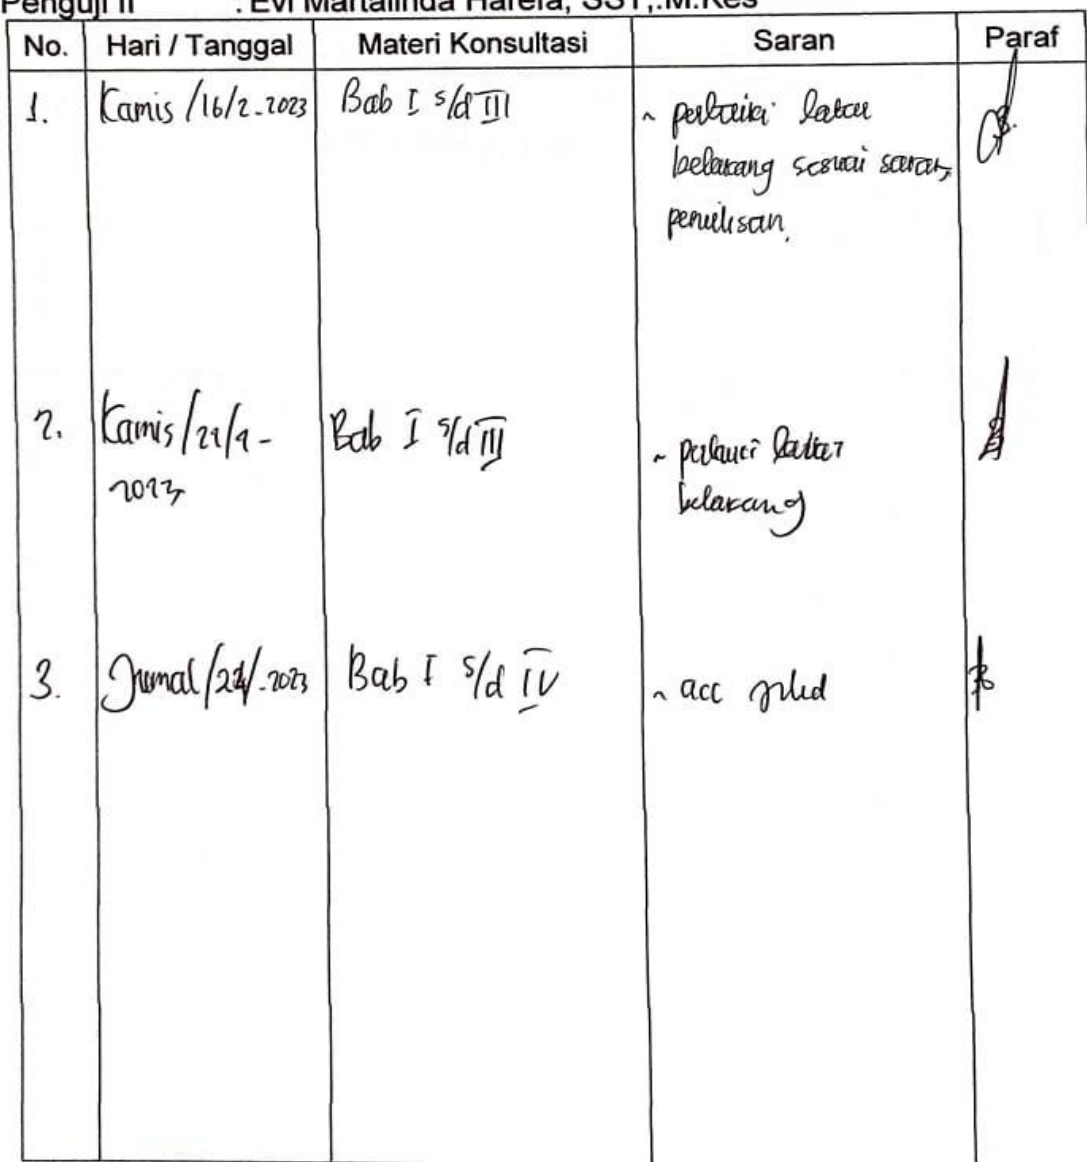 Penguji II : Evi Martalinda Harefa, SST,.M.Kes
No. Hari / Tanggal Materi Konsultasi Saran Paraf
1. Kamis /16/2-2023 Bab I s/d III ~ perbaiki latar
belakang sesuai saran,
penulisan.
2. Kamis / Bab I s/d III ~ latar
2023 belakang
3. Jumat / -2023 Bab I s/d IV ~ acc